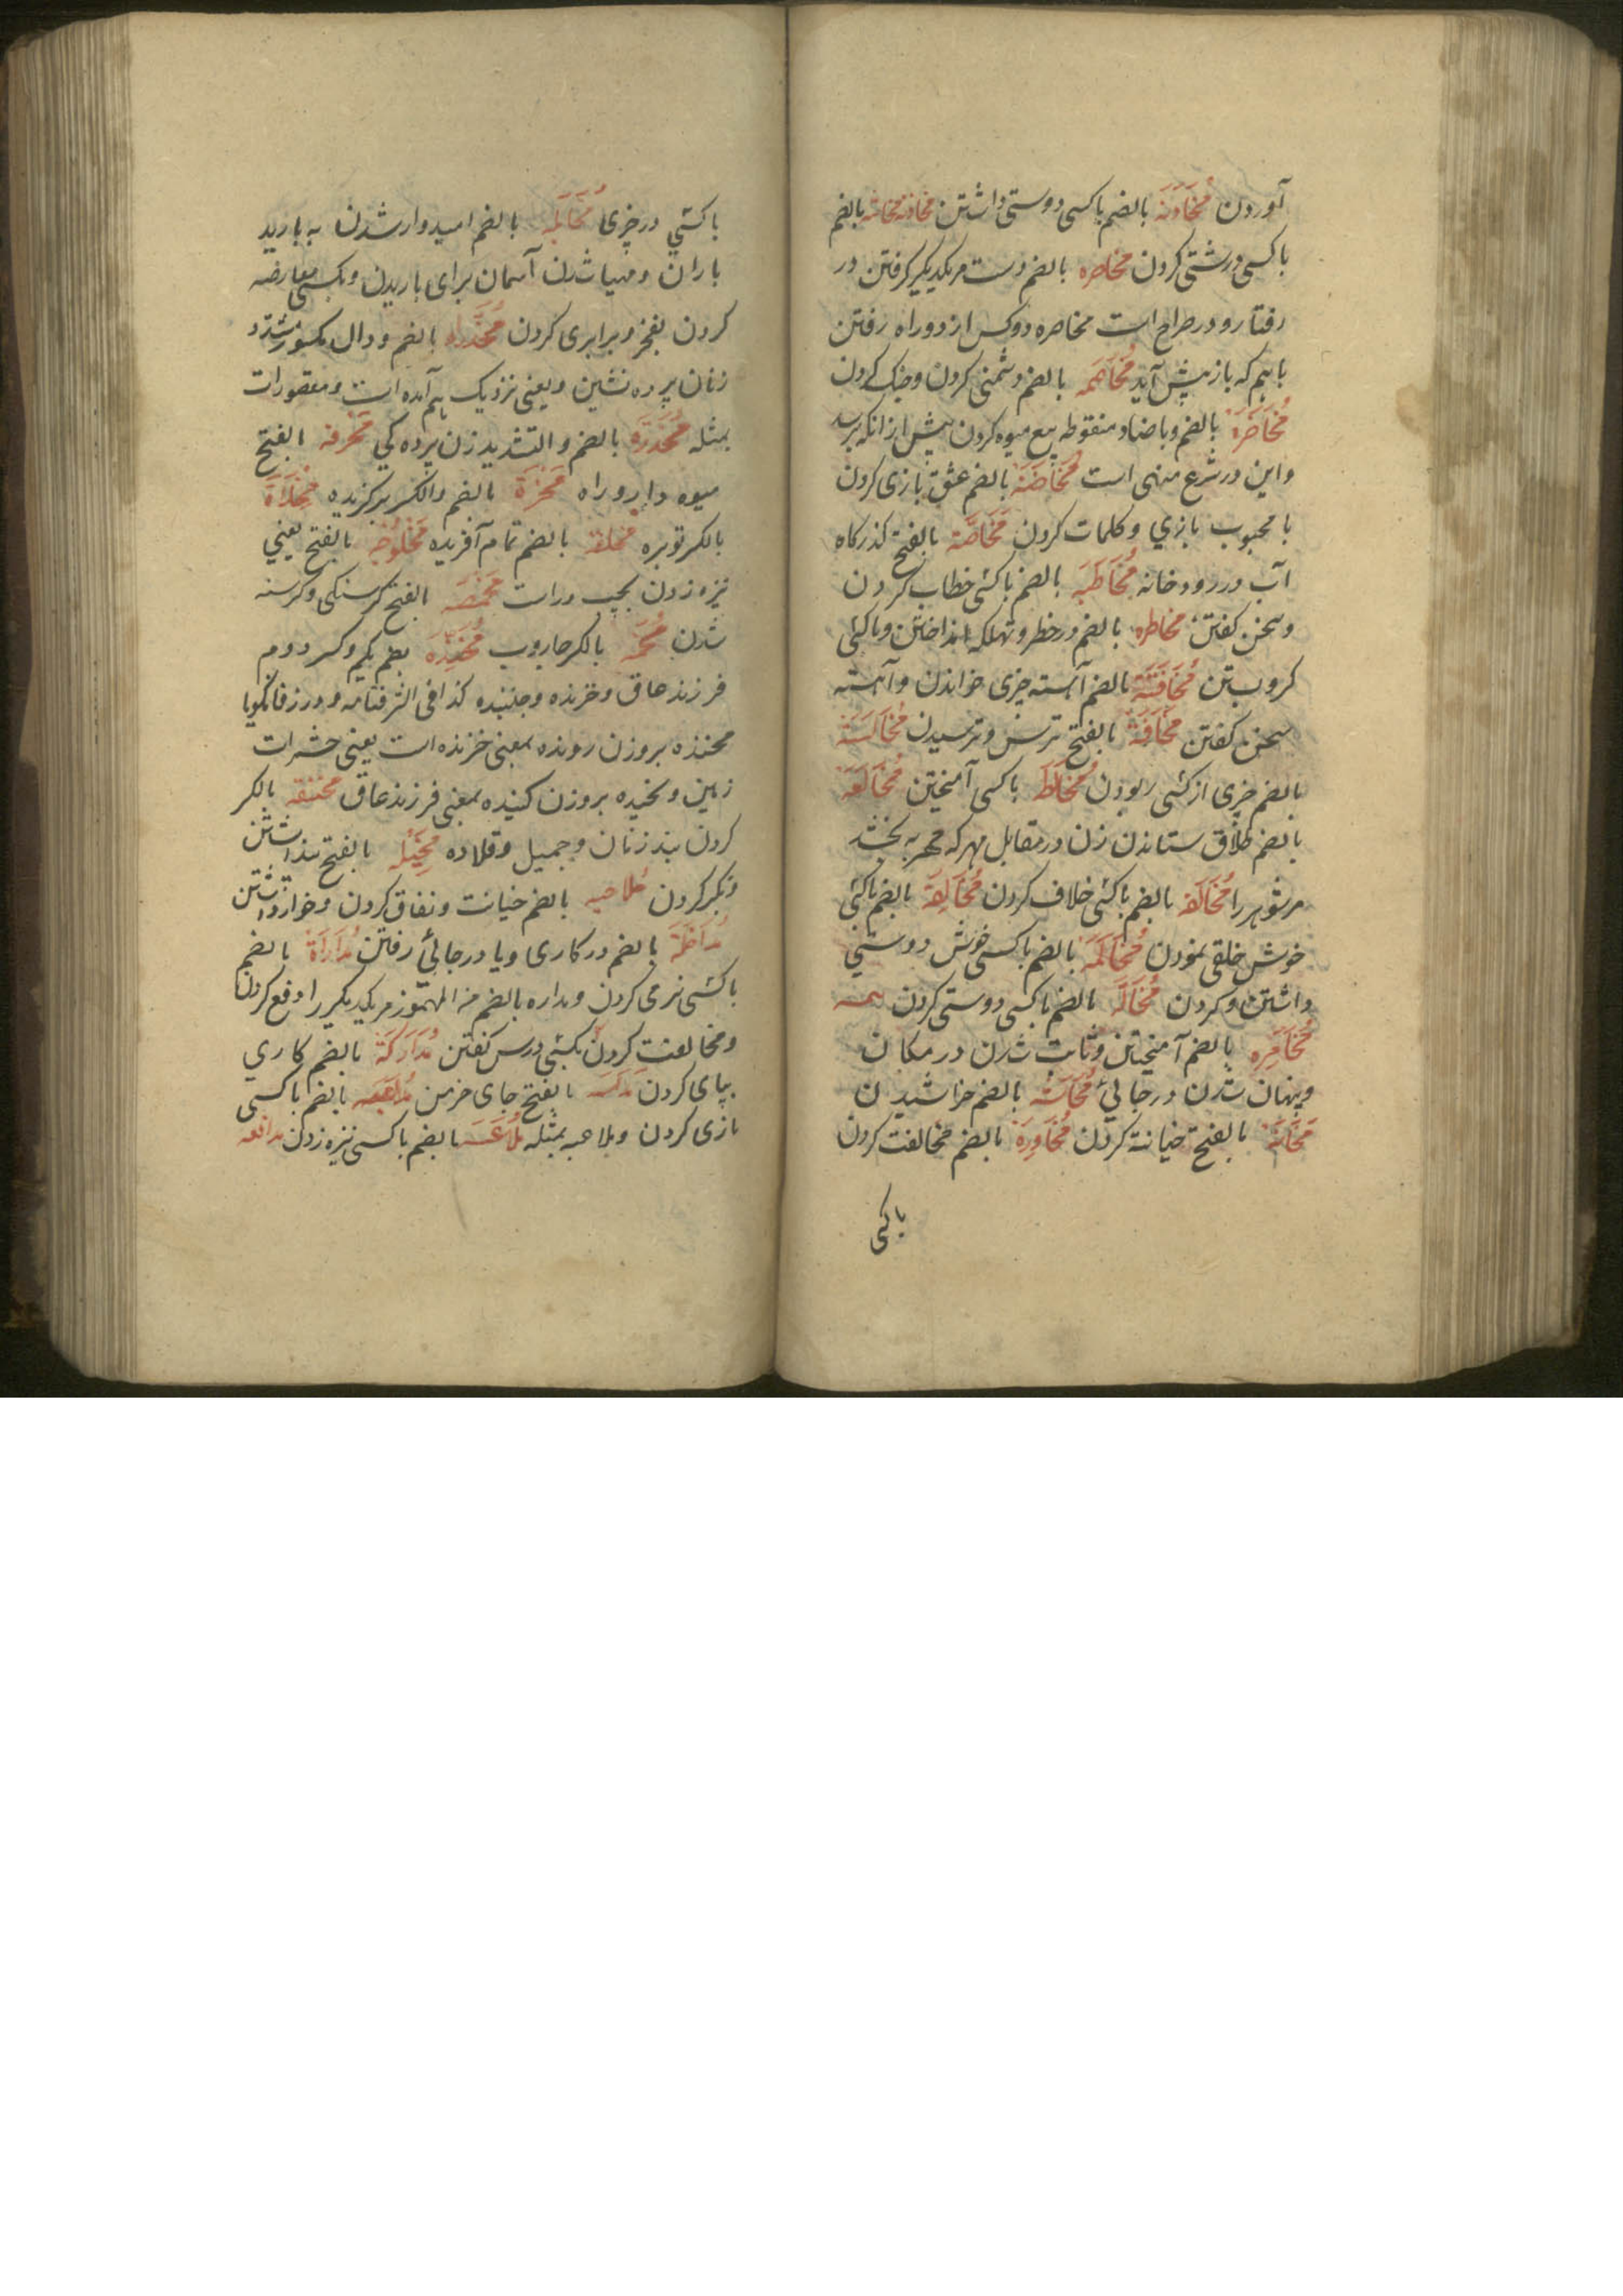 آوردن مُخَاوَنَة بالضم باکسی دوستی داشتن مخادنه مخاشنه بالضم
باکسی درشتی کردن مخاصره بالضم دست مر یکدیکر کرفتن در
رفتار و در صراح است مخاصره دو کس از دو راه رفتن
باهم که باز پیش آید مُخَاصَمَه بالضم دشمنی کردن و جنک کردن
مُخَاضَرَة بالضم و باضاد منقوطه بیع میوه کردن پیش ازانکه برسد
و این در شرع منهی است مُخَاضَنَة بالضم عشق بازی کردن
با محبوب بازي و کلمات کردن مَخَاضَة بالفتح کذرکاه
آب در رودخانه مُخَاطَبَه بالضم باکسی خطاب کردن
و سخن کفتن مخاطره بالضم در خطر و تهلکه انداختن و باکسی
کرو بستن مُخَافَتَة بالضم آهسته چیزی خواندن و آهسته
سخن کفتن مَخَافَة بالفتح ترس و ترسیدن مُخَالَسَة
بالضم چیزی از کسی ربودن مُخَالَطَ باکسی آمیختن مُخَالَعَة
بالضم طلاق ستاندن زن در مقابل مهر که مهر به بخشد
مر شوهر را مُخَالَفَه بالضم باکسی خلاف کردن مُخَالِقَة بالضم باکسی
خوش خلقی نمودن مُخَالَمَة بالضم باکسی خوش دوستی
داشتن و کردن مُخَالَّه بالضم باکسی دوستی کردن
مُخَامِرَه بالضم آمیختن و ثابت شدن در مکان
و پنهان شدن در جائی مُخَاشَه بالضم خراشیدن
مَخَانَة بالفتح خیانة کردن مُخَاوِرَة بالضم مخالفت کردن
باکسی
باکسي در چیزی مُخَايَلَه بالضم امیدوار شدن به بارید
باران و مهیا شدن آسمان برای باریدن و بکسی معارضه
کردن بفخر و برابری کردن مُخَدَّرَاه بالضم و دال مکسور مشدد
زنان پرده نشین و یعنی نزدیک بهم آمده است و مقصورات
بمثله مُخَدَّرَه بالضم و التشدید زن پرده کی مَخْرَفَه بالفتح
میوه دار و راه مَخْزَة بالضم و الکسر برکزیده مِخْلَاة
بالکسر توبره مخلقة بالضم تمام آفریده مَخْلُوْجَه بالفتح یعني
نیزه زدن بچپ و راست مَخْمَصَه بالفتح کرسنکی و کرسنه
شدن مِخَمَّه بالکسر جاروب مُخَنَّدَه بضم یکم و کسر دوم
فرزند عاق و خزنده و جنبنده کذا فی الشرفنامه و در زفانکویا
مخنده بروزن رونده بمعنی خزنده است یعنی حشرات
زمین و مخیده بروزن کنیده بمعنی فرزند عاق مخنقه بالکسر
کردن بند زنان و جمیل و قلاده مَخِيْلَه بالفتح پنداشتن
و تکبر کردن مُداجیه بالضم خیانت و نفاق کردن و خوار داشتن
مُدَاخَلَة بالضم در کاری و یا در جائی رفتن مُدَارَاة بالضم
باکسی نرمی کردن و مداره بالضم من المهموز مر یکدیکر را دفع کردن
و مخالفت کردن بکسی درس کفتن مُدَارَكَة بالضم کاري
بپای کردن بالفتح جای خرمن مُدَاعَبَه بالضم باکسی
بازی کردن و ملاعبه بمثله مُدَاعَسَه بالضم باکسی نیزه زدن مدافعه